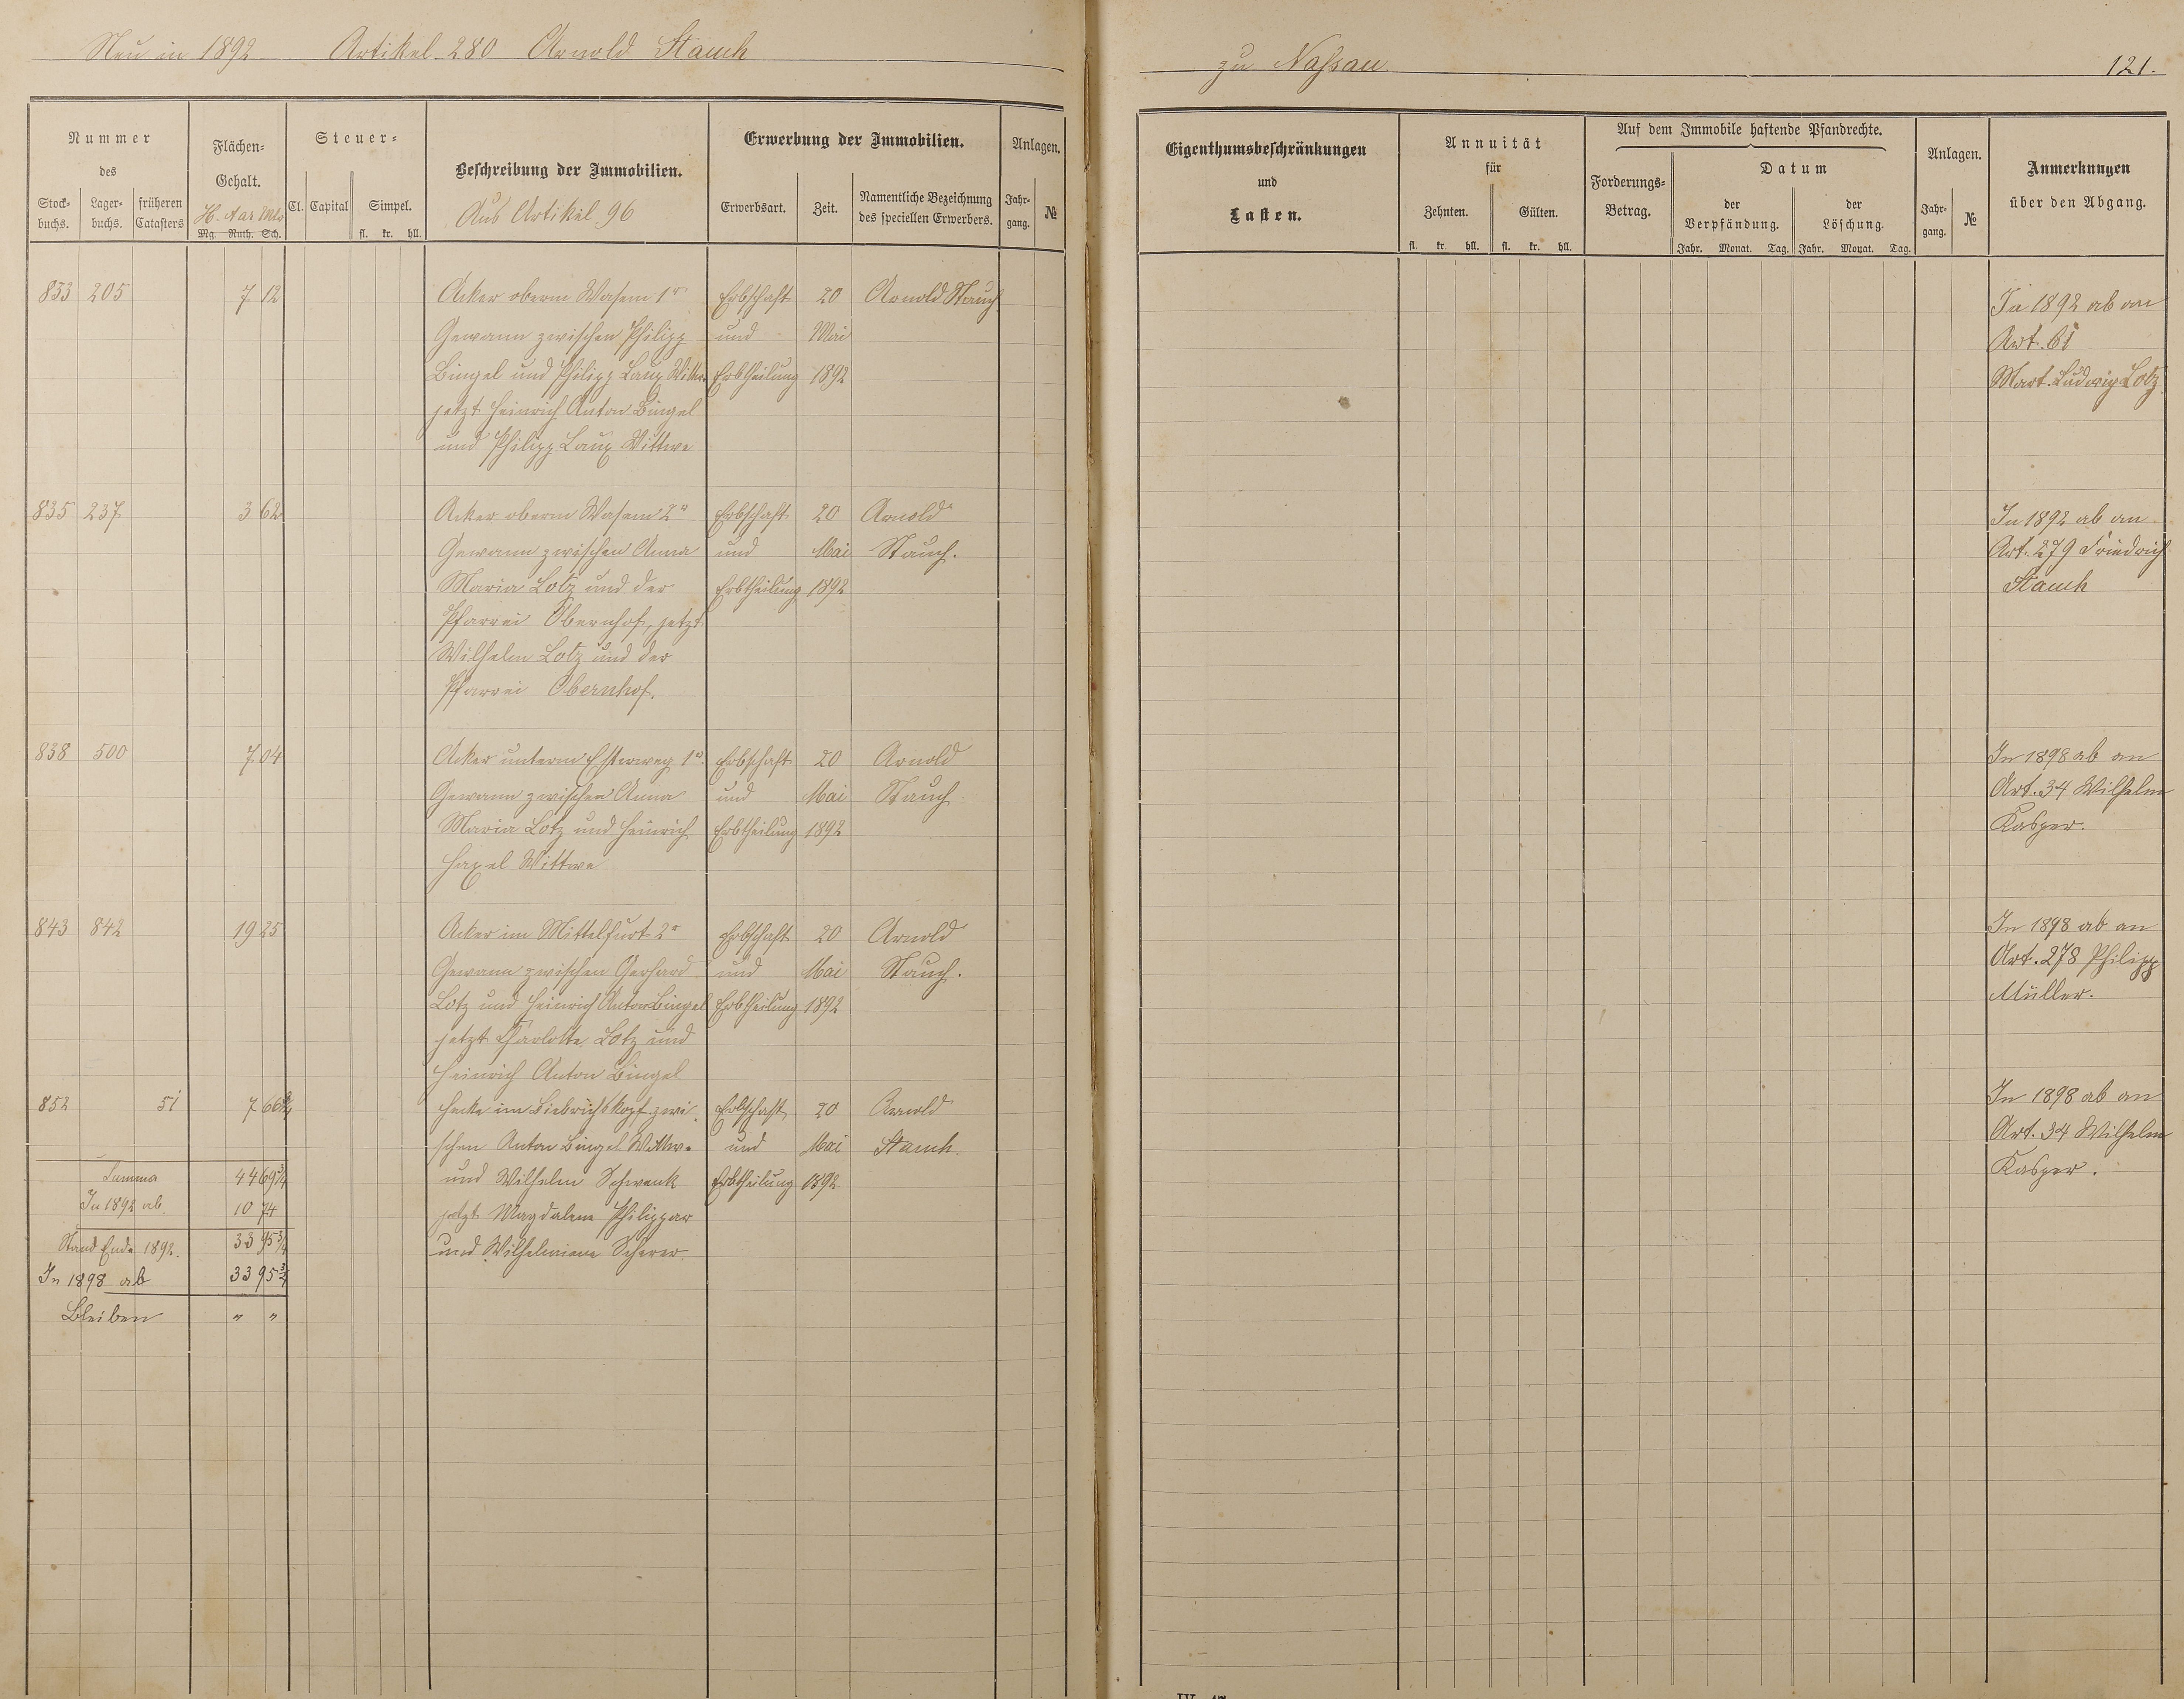 Neu in 1892 Artikel 280 Arnold Stauch
Nummer
des
Stock-
buchs.
Lager-
buchs.
früheren
Catasters
Flächen-
Gehalt.
H. Aar Mtr
Mg. Ruth. Sch.
Steuer-
Cl. Capital Simpel.
fl. kr. hll.
Beschreibung der Immobilien.
Aus Artikel 96
Erwerbung der Immobilien.
Erwerbsart. Zeit.
Namentliche Bezeichnung
des speciellen Erwerbers.
Anlagen.
Jahr-
gang.
№
833 205 7 12 Acker oberm Wasem 1r Erbschaft 20 Arnold Stauch
Gewann zwischen Philipp und Mai
Bingel und Philipp Laux Wittwe Erbtheilung 1892
jetzt Heinrich Anton Bingel
und Philipp Laux Wittwe
835 237 3 62 Acker oberm Wasem 2r Erbschaft 20 Arnold
Gewann zwischen Anna und Mai Stauch.
Maria Lotz und der Erbtheilung 1892
Pfarrei Obernhof, jetzt
Wilhelm Lotz und der
Pfarrei Obernhof.
838 500 7 04 Acker unterm 1r Erbschaft 20 Arnold
Gewann zwischen Anna und Mai Stauch.
Maria Lotz und Heinrich Erbtheilung 1892
Haxel Wittwe
843 842 19 25 Acker im Mittelfurt 2r Erbschaft 20 Arnold
Gewann zwischen Gerhard und Mai Stauch.
Lotz und Heinrich Anton Bingel Erbtheilung 1892
jetzt Charlotte Lotz und
Heinrich Anton Bingel
852 51 7 66 3/4 Hecke im Biebrichskopf zwi- Erbschaft 20 Arnold
schen Anton Bingel Wittwe und Mai Stauch.
und Wilhelm Schwenk Erbtheilung 1892
jetzt Magdalene Philippar
und Wilhelmine Scherer
Summa 44 69 3/4
In 1892 ab. 10 74
Stand Ende 1892. 33 95 3/4
In 1898 ab 33 95 3/4
Bleiben " "
zu Nassau. 121.
Eigenthumsbeschränkungen
und
Lasten.
Annuität
für
Zehnten. Gülten.
fl. kr. hll. fl. kr. hll.
Auf dem Immobile haftende Pfandrechte.
Forderungs-
Betrag.
Datum
der
Verpfändung.
der
Löschung.
Jahr. Monat. Tag. Jahr. Monat. Tag.
Anlagen.
Jahr-
gang.
№
Anmerkungen
über den Abgang.
In 1892 ab an
Art. 61
Mart. Ludwig Lotz
In 1892 ab an
Art. 279 Friedrich
Stauch
In 1898 ab an
Art. 34 Wilhelm
Kasper.
In 1898 ab an
Art. 278 Philipp
Müller.
In 1898 ab an
Art. 34 Wilhelm
Kasper.